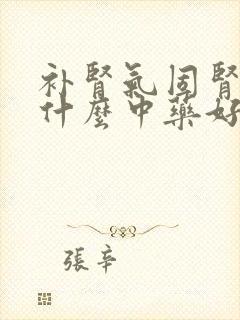 补腎氣固腎
什麼中藥好
張辛